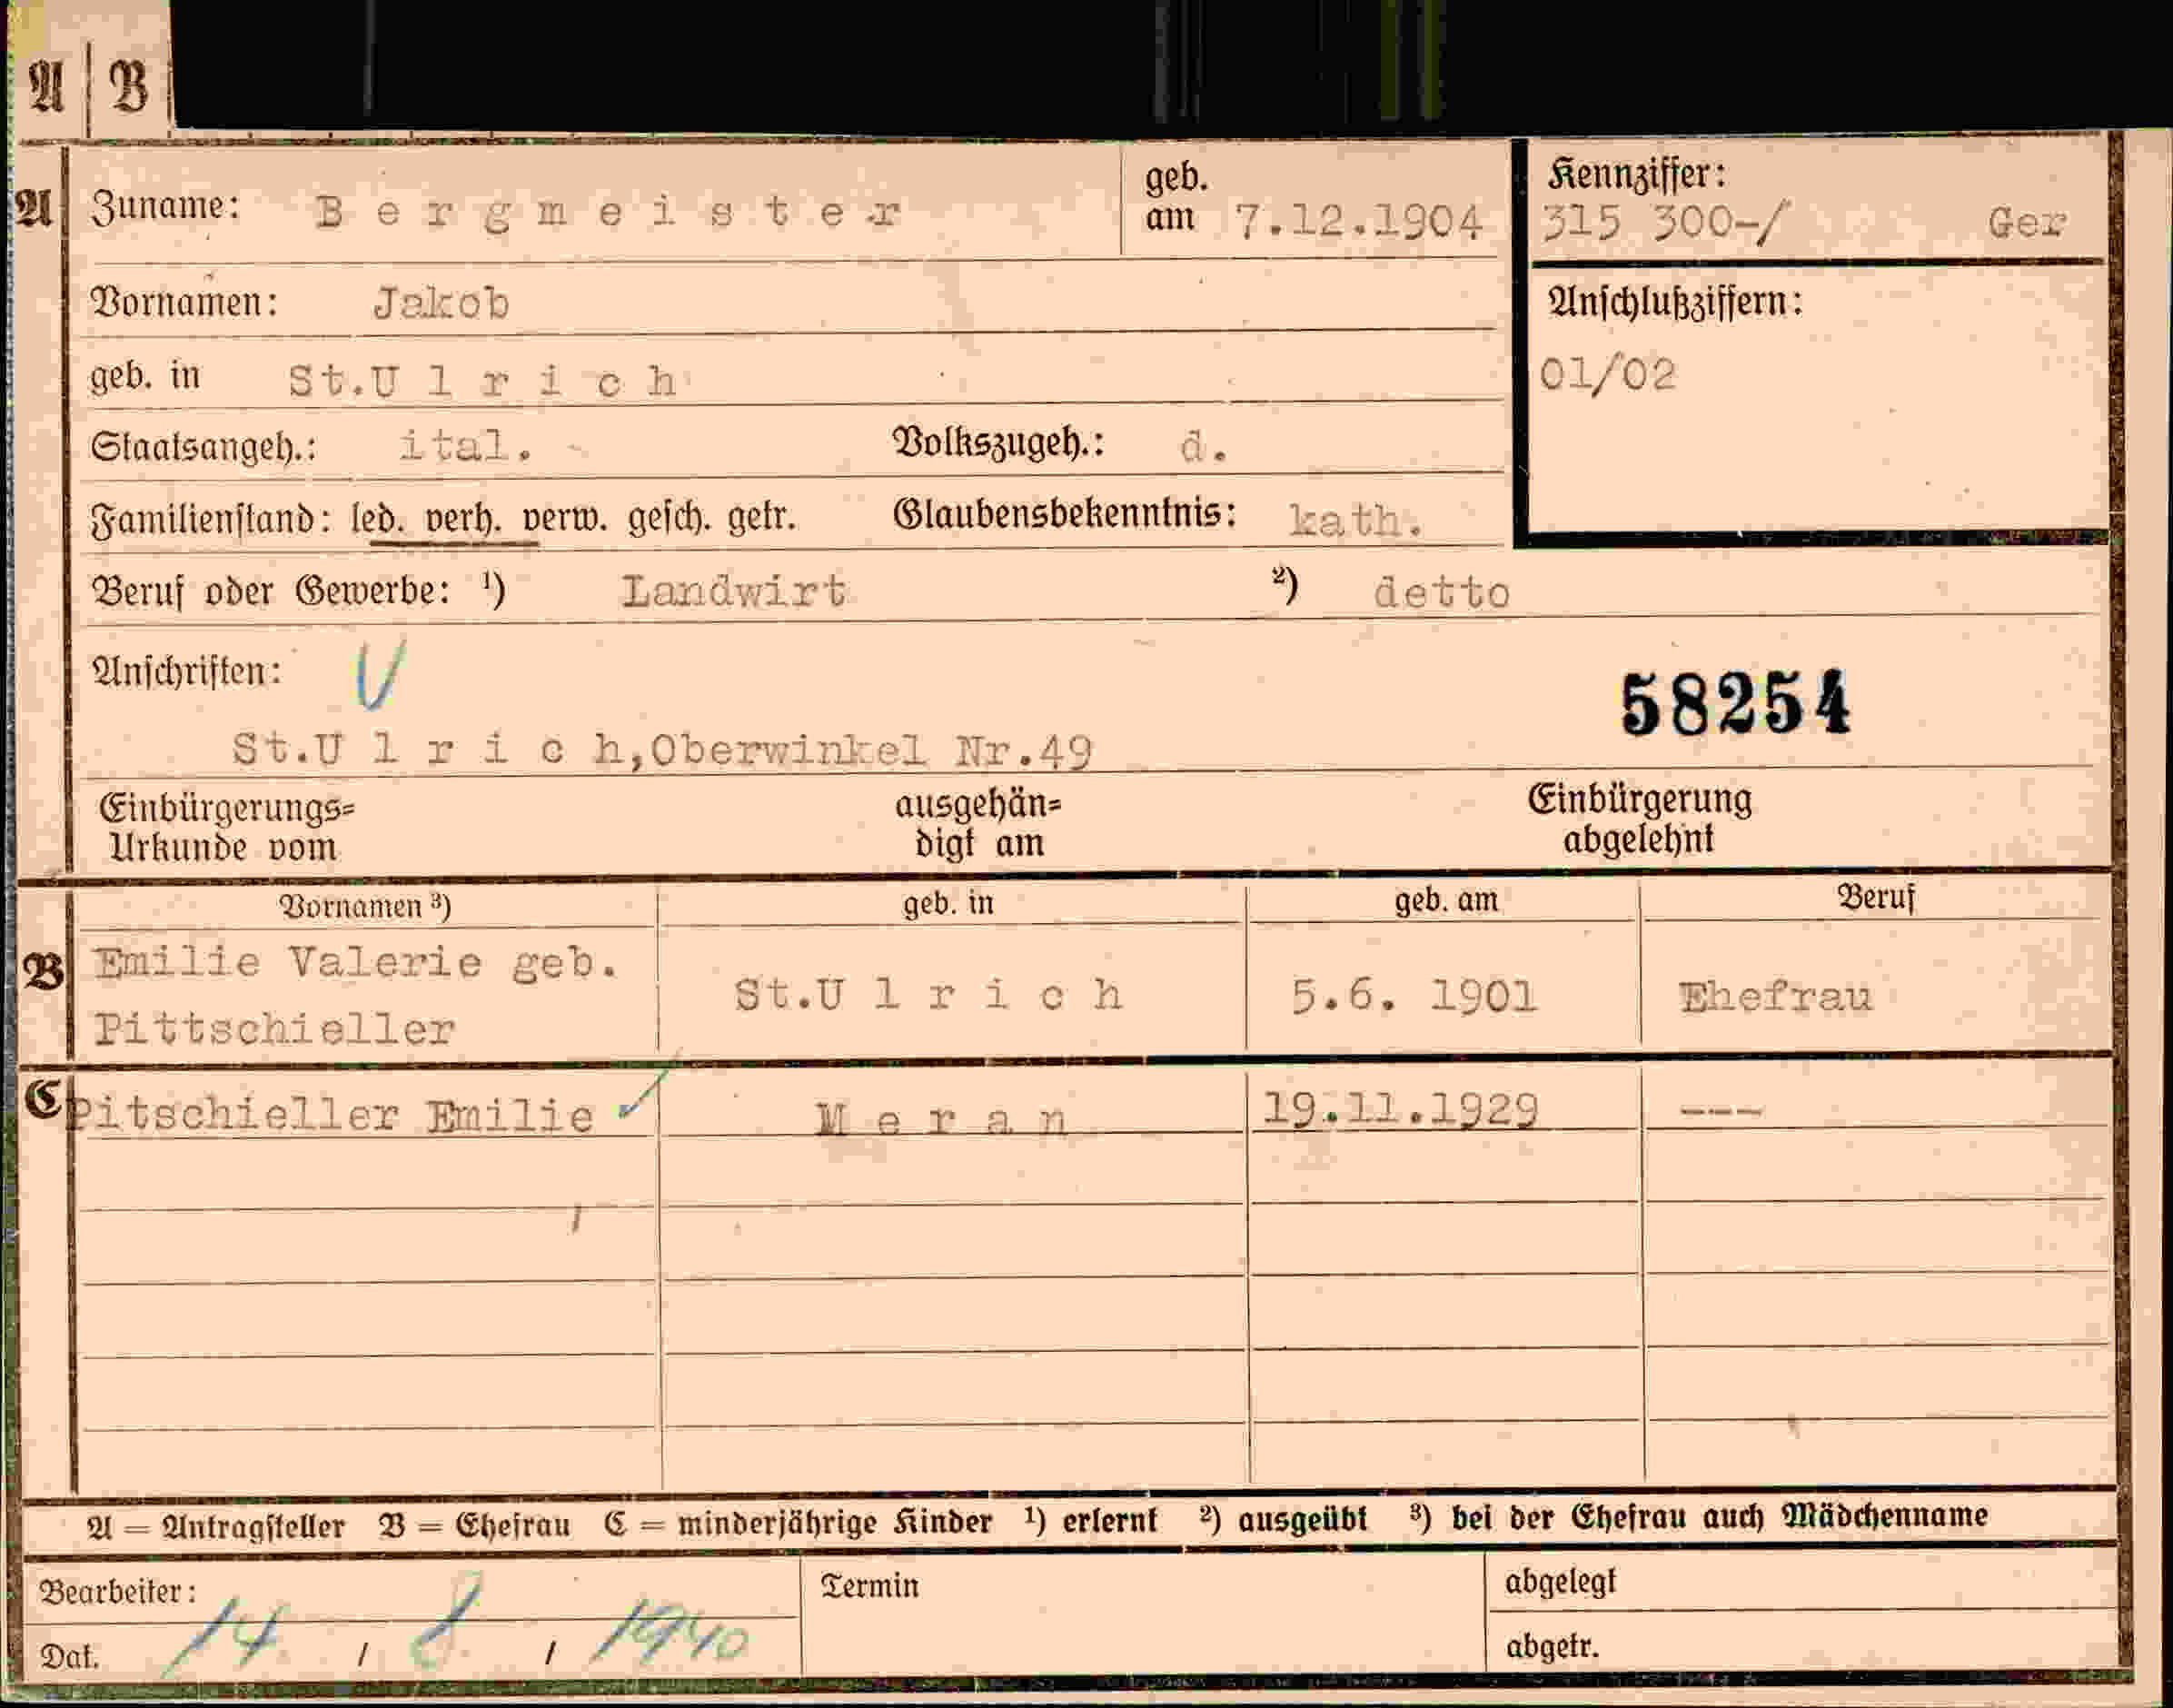 A | B
A Zuname: Bergmeister geb. am 7.12.1904 Kennziffer: 315 300-/ Ger
Vornamen: Jakob Anschlußziffern:
geb. in St.Ulrich 01/02
Staatsangeh.: ital. Volkszugeh.: d.
Familienstand: led. verh. verw. gesch. getr. Glaubensbekenntnis: kath.
Beruf oder Gewerbe: ¹) Landwirt ²) detto
Anschriften:
58254
St.Ulrich,Oberwinkel Nr.49
Einbürgerungs= ausgehän= Einbürgerung
Urkunde vom digt am abgelehnt
Vornamen ³) geb. in geb. am Beruf
B Emilie Valerie geb. St.Ulrich 5.6. 1901 Ehefrau
Pittschieller
C Pitschieller Emilie Meran 19.11.1929 ---
A = Antragsteller B = Ehefrau C = minderjährige Kinder ¹) erlernt ²) ausgeübt ³) bei der Ehefrau auch Mädchenname
Bearbeiter: Termin abgelegt
Dat. 14 / 8 / 1940 abgetr.